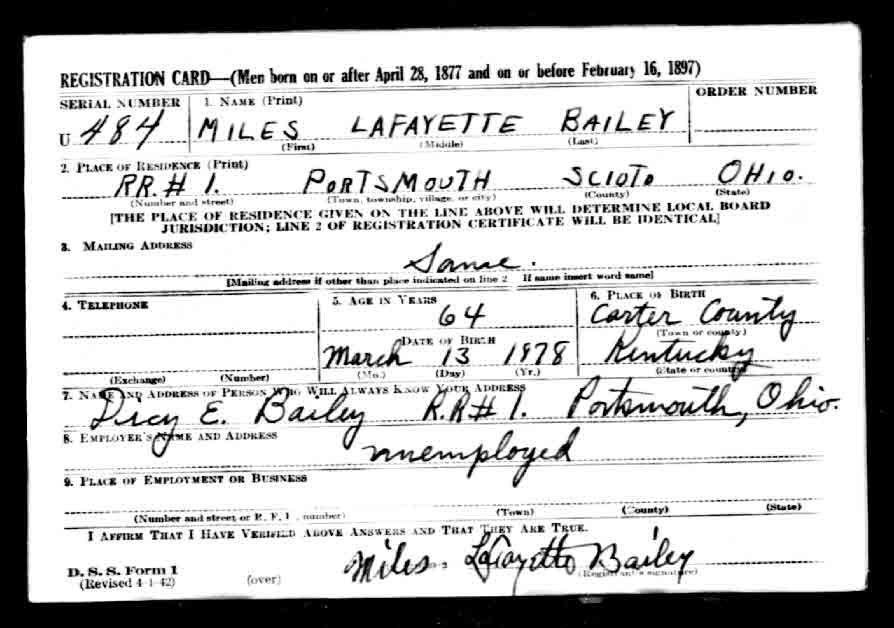 REGISTRATION CARD—(Men born on or after April 28, 1877 and on or before February 16, 1897)
SERIAL NUMBER 1. NAME (Print) ORDER NUMBER
U 484 MILES LAFAYETTE BAILEY
(First) (Middle) (Last)
2. PLACE OF RESIDENCE (Print)
RR.# 1. PORTSMOUTH SCIOTO OHIO.
(Number and street) (Town, township, village, or city) (County) (State)
[THE PLACE OF RESIDENCE GIVEN ON THE LINE ABOVE WILL DETERMINE LOCAL BOARD
JURISDICTION; LINE 2 OF REGISTRATION CERTIFICATE WILL BE IDENTICAL]
3. MAILING ADDRESS
Same.
[Mailing address if other than place indicated on line 2. If same insert word same]
4. TELEPHONE 5. AGE IN YEARS 6. PLACE OF BIRTH
64 Carter County
DATE OF BIRTH (Town or county)
March 13 1878 Kentucky
(Exchange) (Number) (Mo.) (Day) (Yr.) (State or country)
7. NAME AND ADDRESS OF PERSON WHO WILL ALWAYS KNOW YOUR ADDRESS
E. Bailey R.R# 1. Portsmouth, Ohio.
8. EMPLOYER'S NAME AND ADDRESS
unemployed
9. PLACE OF EMPLOYMENT OR BUSINESS
(Number and street or R. F. D. number) (Town) (County) (State)
I AFFIRM THAT I HAVE VERIFIED ABOVE ANSWERS AND THAT THEY ARE TRUE.
D. S. S. Form 1 Miles Lafayette Bailey
(Revised 4-1-42) (over) (Registrant's signature)